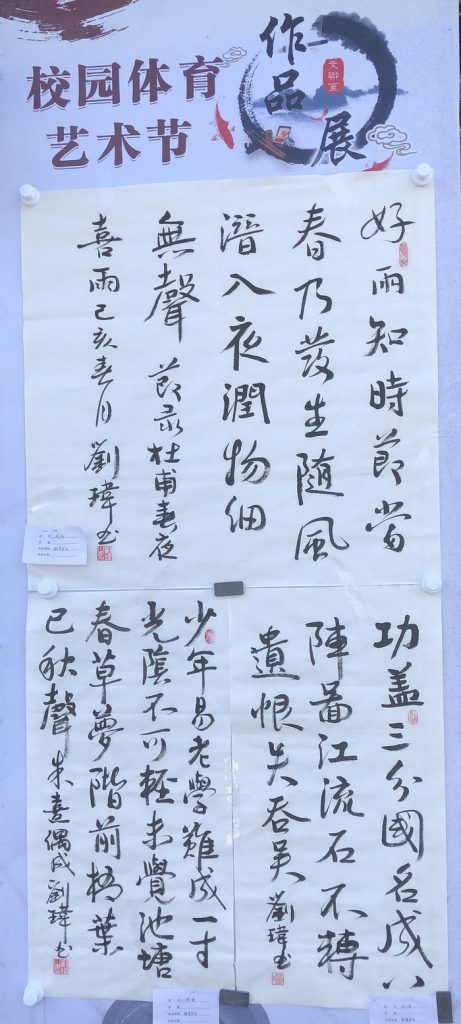 校园体育
艺术节
作品展
好雨知時節當
春乃發生隨風
潛入夜潤物細
無聲 節录杜甫春夜
喜雨己亥春月劉瑋书
功盖三分國名成八
陣啚江流石不轉
遺恨失吞吴 劉瑋书
少年易老學難成一寸
光陰不可輕未覺池塘
春草夢階前梧葉
已秋聲 朱熹偶成劉瑋书